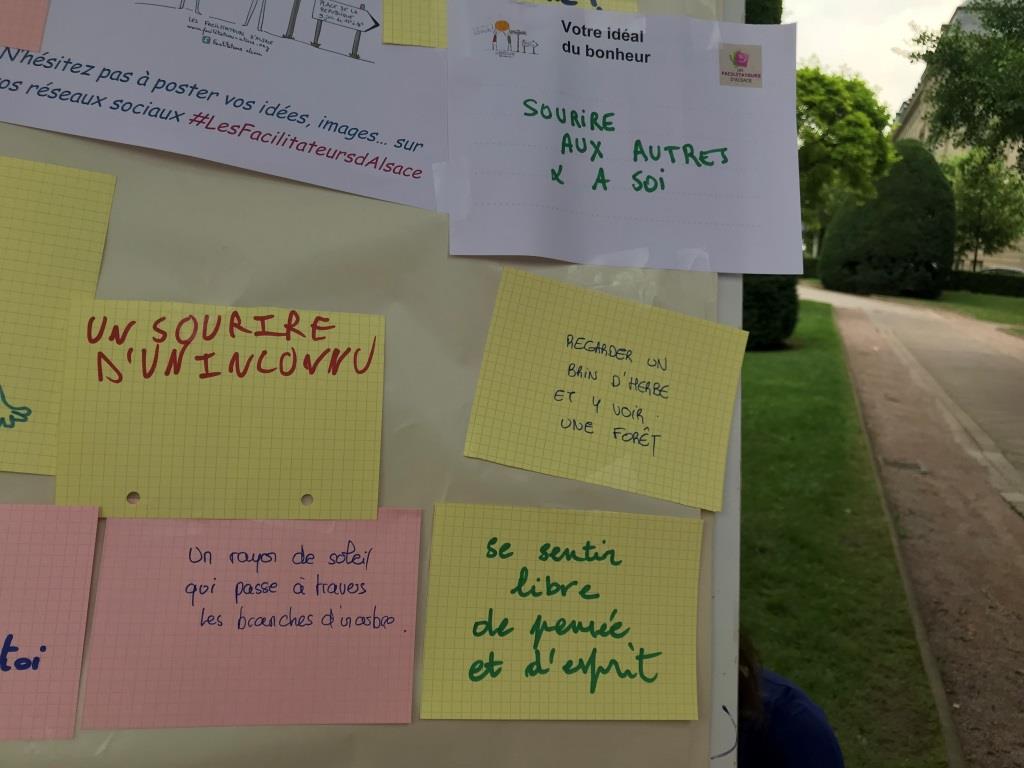 PLACE DE LA
RÉPUBLIQUE
LES FACILITATEURS D'ALSACE
N'hésitez pas à poster vos idées, images... sur
vos réseaux sociaux #LesFacilitateursdAlsace
Votre idéal
du bonheur
LES
FACILITATEURS
D'ALSACE
SOURIRE
AUX AUTRES
& A SOI
UN SOURIRE
D'UN INCONNU
REGARDER UN
BRIN D'HERBE
ET Y VOIR
UNE FORÊT
Un rayon de soleil
qui passe à travers
les branches d'un arbre.
se sentir
libre
de pensée
et d'esprit
toi